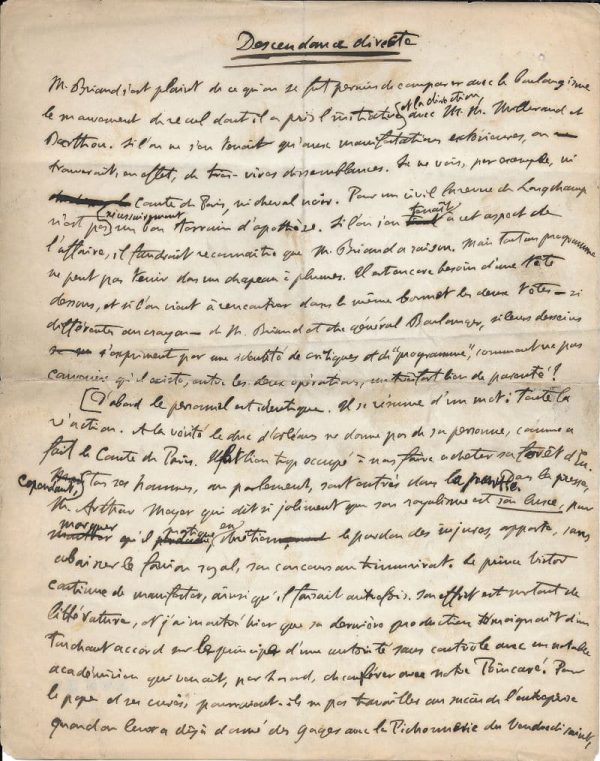 Descendance directe
M. Briand s'est plaint de ce qu'on se fut permis de comparer avec le boulangisme
le mouvement de recul dont il a pris l'initiative et la direction avec M. M. Millerand et
Barthou. Si l'on ne s'en tenait qu'aux manifestations extérieures, on
trouverait, en effet, de très vives dissemblances. Je ne vois, par exemple, ni
Comte de Paris, ni cheval noir. Pour un civil la revue de Longchamp
n'est pas nécessairement un bon terrain d'apothéose. Si l'on s'en tenait à cet aspect de
l'affaire, il faudrait reconnaître que M. Briand a raison. Mais tout un programme
ne peut pas tenir dans un chapeau à plumes. Il est encore besoin d'une tête
dessous, et si l'on vient à rencontrer dans le même bonnet les deux têtes — si
différentes au crayon — de M. Briand et du général Boulanger, si leurs desseins
s'expriment par une identité de critiques et de "programme", comment ne pas
convenir qu'il existe, entre les deux opérations, un très fort lien de parenté ?
D'abord le personnel est identique. Il se résume d'un mot : toute la
réaction. A la vérité le duc d'Orléans ne donne pas de sa personne, comme a
fait le Comte de Paris. Il est bien trop occupé à nous faire acheter sa forêt d'Eu.
Cependant, tous ses hommes, au parlement, sont entrés dans la partie. Dans la presse,
M. Arthur Meyer qui dit si joliment que son royalisme est son luxe, pour
marquer qu'il pratique en chrétien le pardon des injures, apporte, sans
abaisser le fanion royal, son concours au triumvirat. Le prince Victor
continue de manifester, ainsi qu'il faisait autrefois. Son effort est surtout de
littérature, et j'ai montré hier que sa dernière production témoignait d'un
touchant accord sur le principe d'une autorité sans contrôle avec un notable
académicien qui venait, par hasard, de conférer avec notre Poincaré. Pour
le pape et ses curés, pourraient-ils ne pas travailler au succès de l'entreprise
quand on leur a déjà donné des gages avec la Pichonnerie du Vendredi saint,